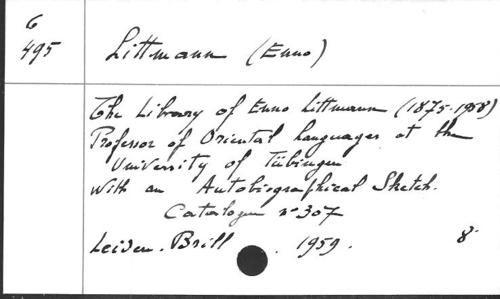 6
495
Littmann (Enno)
The Library of Enno Littmann (1875-1958)
Professor of Oriental Languages at the
University of Tübingen
with an Autobiographical Sketch.
Catalogue n° 307
Leiden. Brill . 1959. 8°